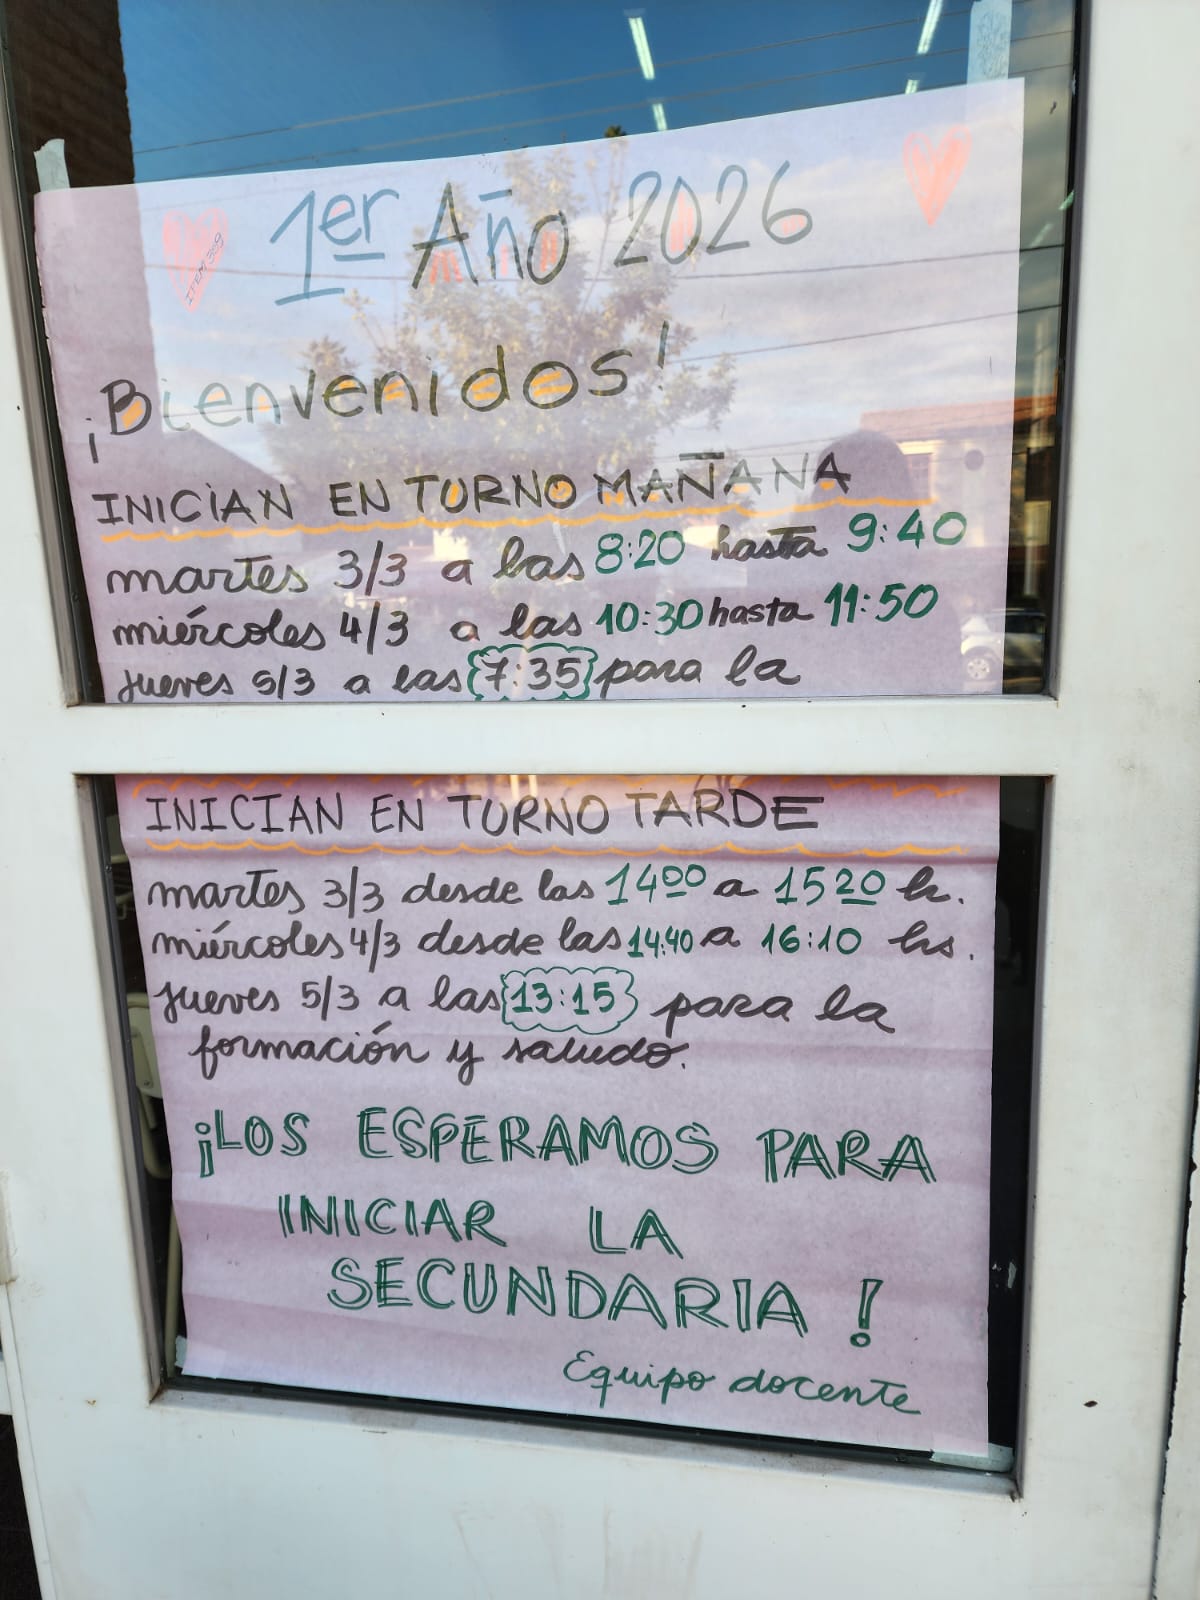 1er Año 2026
ITEM 309
¡Bienvenidos!
INICIAN EN TURNO MAÑANA
martes 3/3 a las 8:20 hasta 9:40
miércoles 4/3 a las 10:30 hasta 11:50
jueves 5/3 a las 7:35 para la
INICIAN EN TURNO TARDE
martes 3/3 desde las 14 00 a 15 20 h.
miércoles 4/3 desde las 14:40 a 16:10 hs.
jueves 5/3 a las 13:15 para la
formación y saludo.
¡LOS ESPERAMOS PARA
INICIAR LA
SECUNDARIA!
Equipo docente